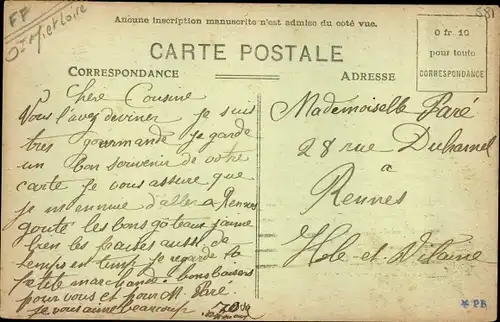 FF
Ot Met Loire
581
Aucune inscription manuscrite n'est admise du coté vue.
CARTE POSTALE
0 fr. 10
pour toute
CORRESPONDANCE
CORRESPONDANCE
ADRESSE
Chere Cousine
Vous l'avez deviner je suis
tres gourmande je garde
un bon souvenir de votre
carte je vous assure que
je m'ennuie d'aller a Rennes
gouté les bons gâteaux j'aime
bien les tartes aussi de
temps en temps je regarde la
petite marchande. bons baisers
pour vous et pour M. Paré.
je vous aime beaucoup.
Mademoiselle Paré
28 rue Duhamel
a
Rennes
Ille-et-Vilaine
PR